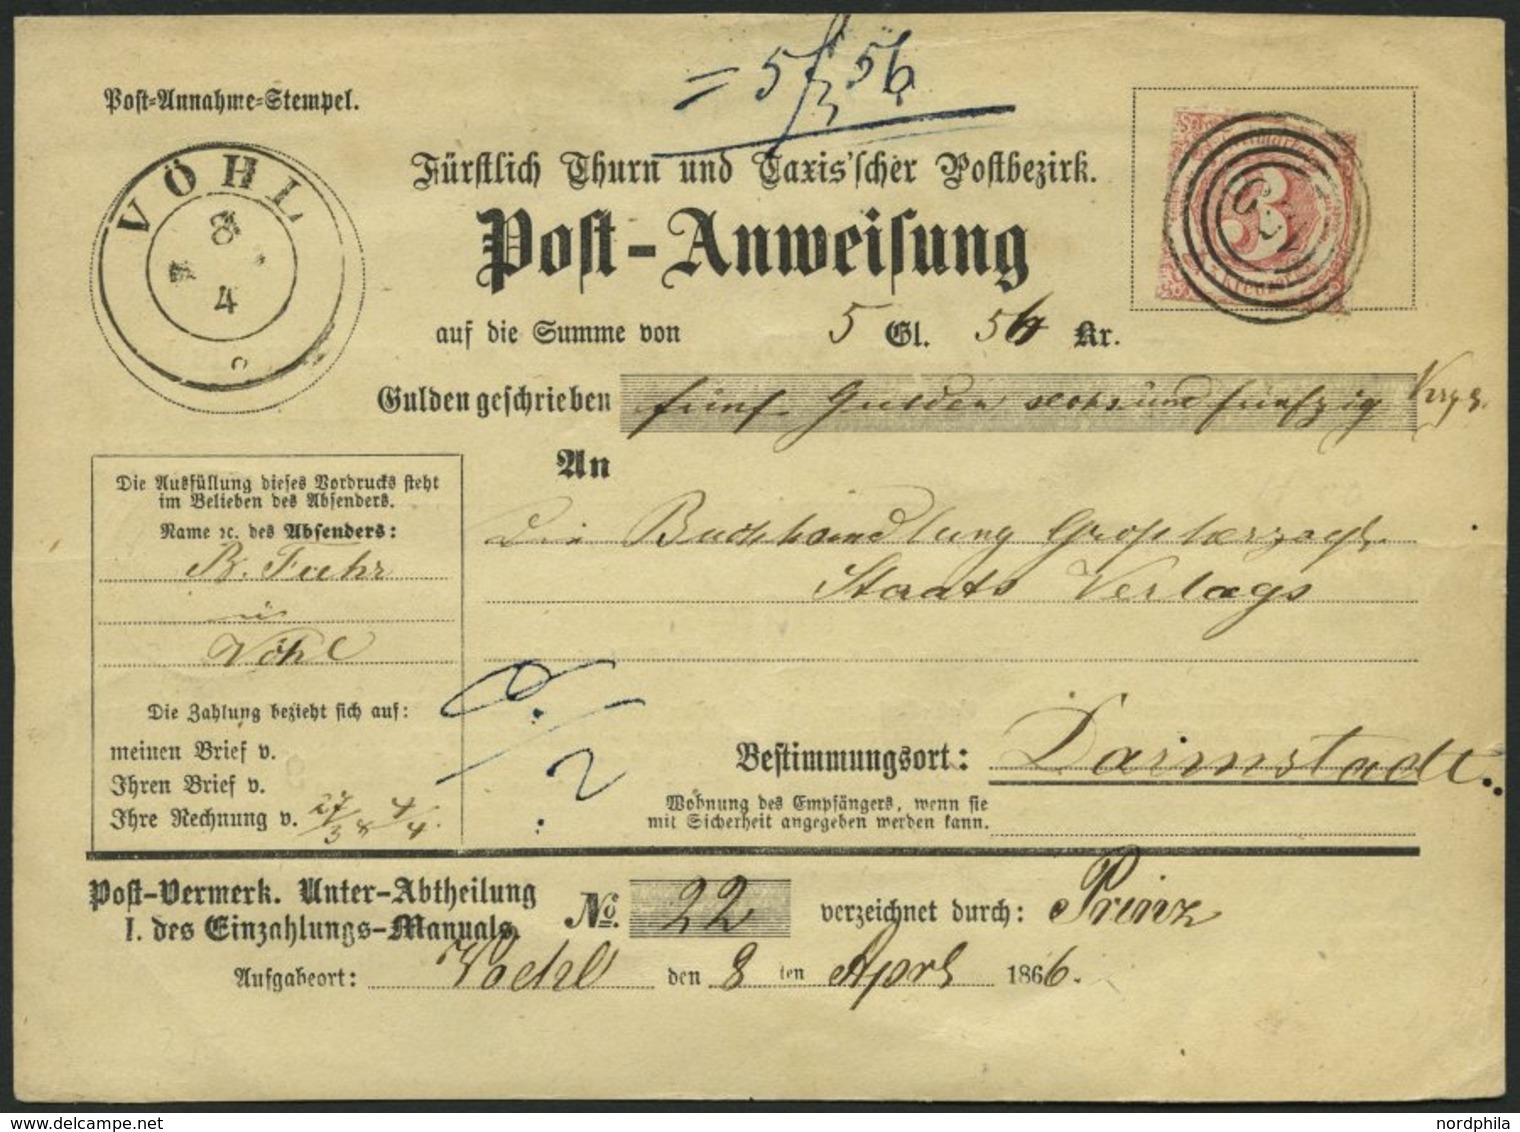 = 5 f 56
Post-Annahme-Stempel.
VÖHL
8
4
Fürstlich Thurn und Taxis'scher Postbezirk.
Post-Anweisung
3
auf die Summe von 5 Gl. 56 Kr.
Gulden geschrieben fünf Gulden sechs und fünfzig
An
Die Ausfüllung dieses Vordrucks steht
im Belieben des Absenders.
Name ꝛc. des Absenders:
B. Fuhr
in
Vöhl
Die Buchhandlung Großherzogl.
Staats Verlags
Die Zahlung bezieht sich auf:
meinen Brief v.
Ihren Brief v.
Ihre Rechnung v. 27/3 & 4/4.
Bestimmungsort: Darmstadt.
Wohnung des Empfängers, wenn sie
mit Sicherheit angegeben werden kann.
Post-Vermerk. Unter-Abtheilung
I. des Einzahlungs-Manuals.
No. 22 verzeichnet durch: Prinz
Aufgabeort: Voehl den 8 ten April 1866.
nordphila